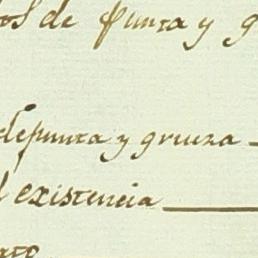 de punta y
de punta y grueza
existencia